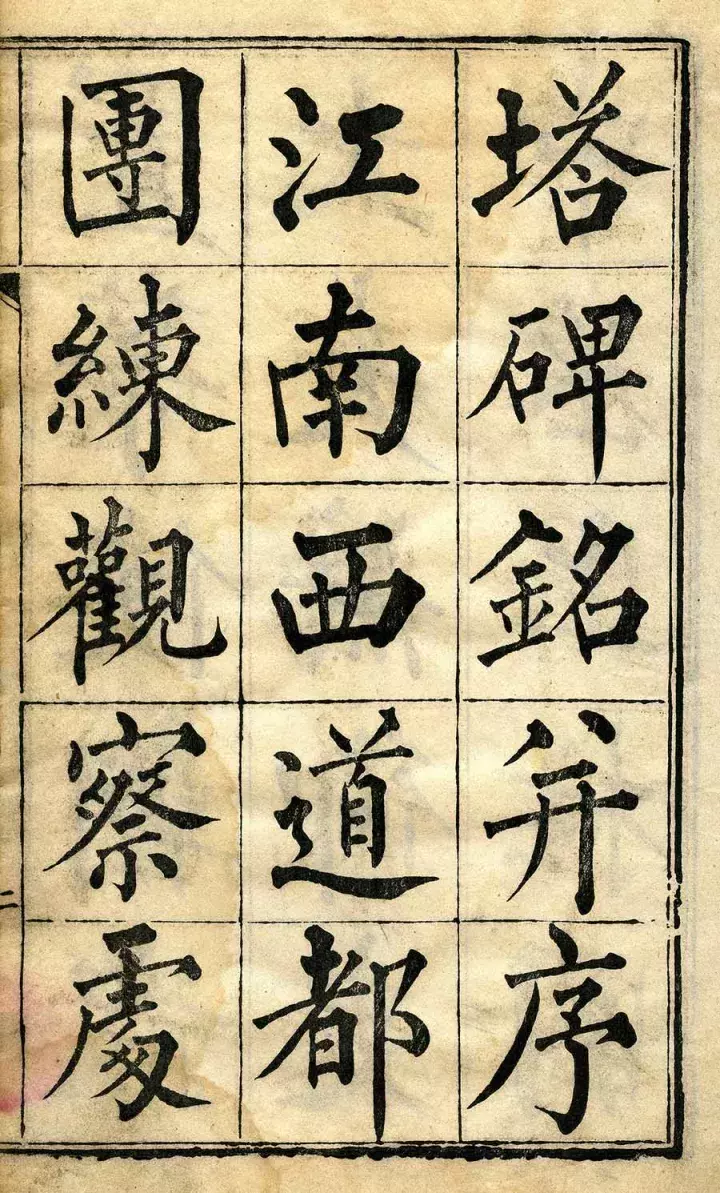 塔碑銘并序
江南西道都
團練觀察處
二